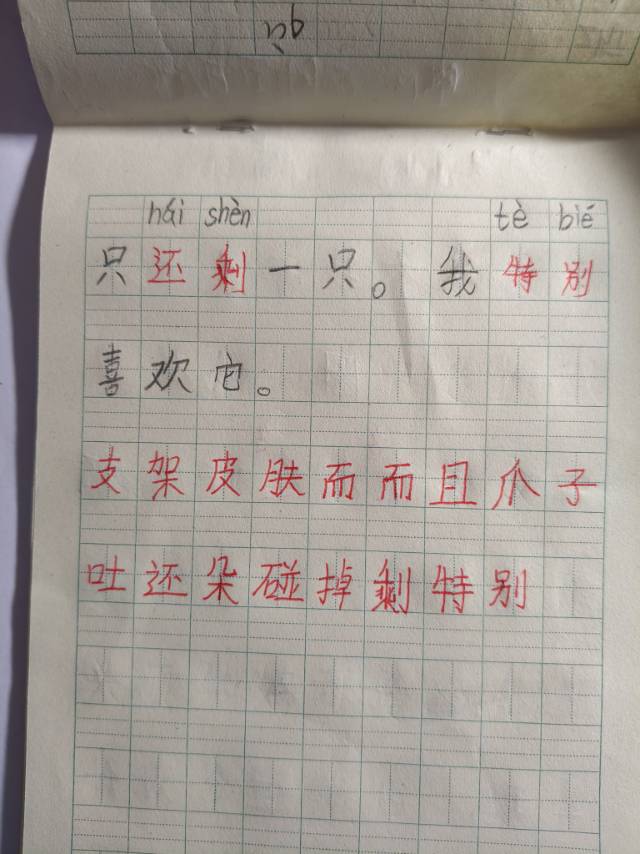 qù
hái shèn tè bié
只还剩一只。我特别
喜欢它。
支架皮肤而而且爪子
吐还朵碰掉剩特别